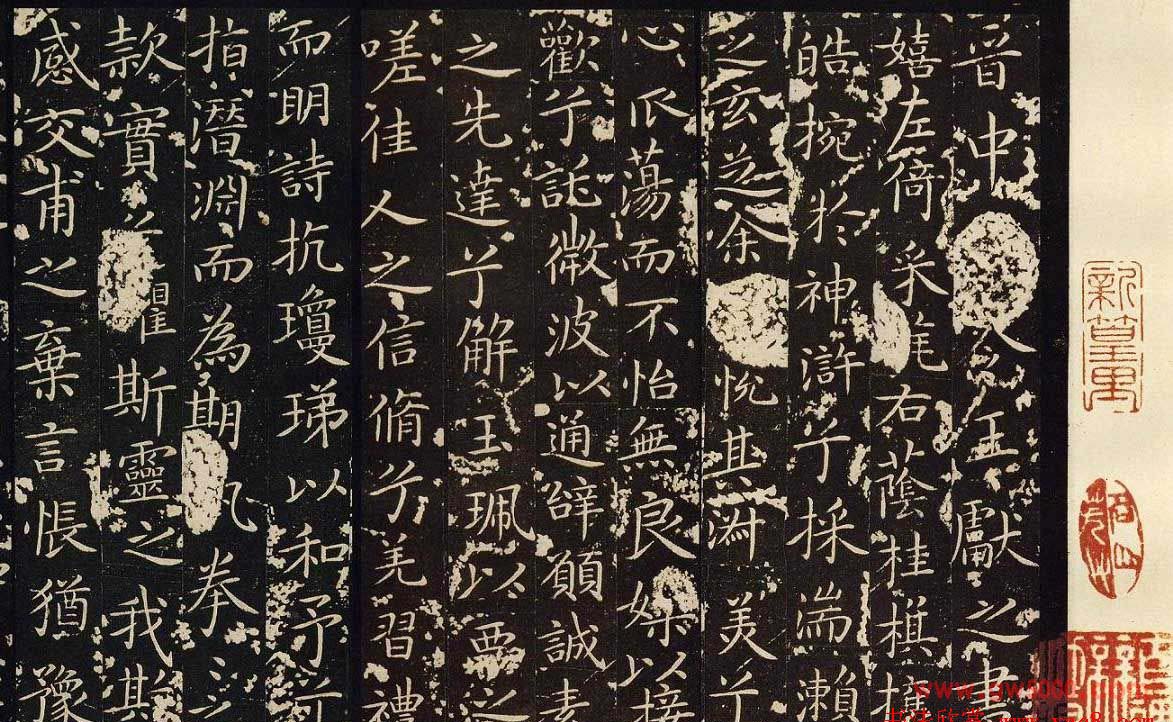 晉中令王獻之書
嬉左倚采旄右蔭桂旗攘
皓捥於神滸兮採湍瀨
之玄芝余悅其淑美兮
心蕩而不怡無良媒以接
歡兮託微波以通辭願誠素
之先達兮解玉珮以要之
嗟佳人之信脩兮羌習禮
而明詩抗瓊珶以和予兮
指潛淵而為期拳之
款實兮懼斯靈之我欺
感交甫之棄言悵猶豫
书法欣赏